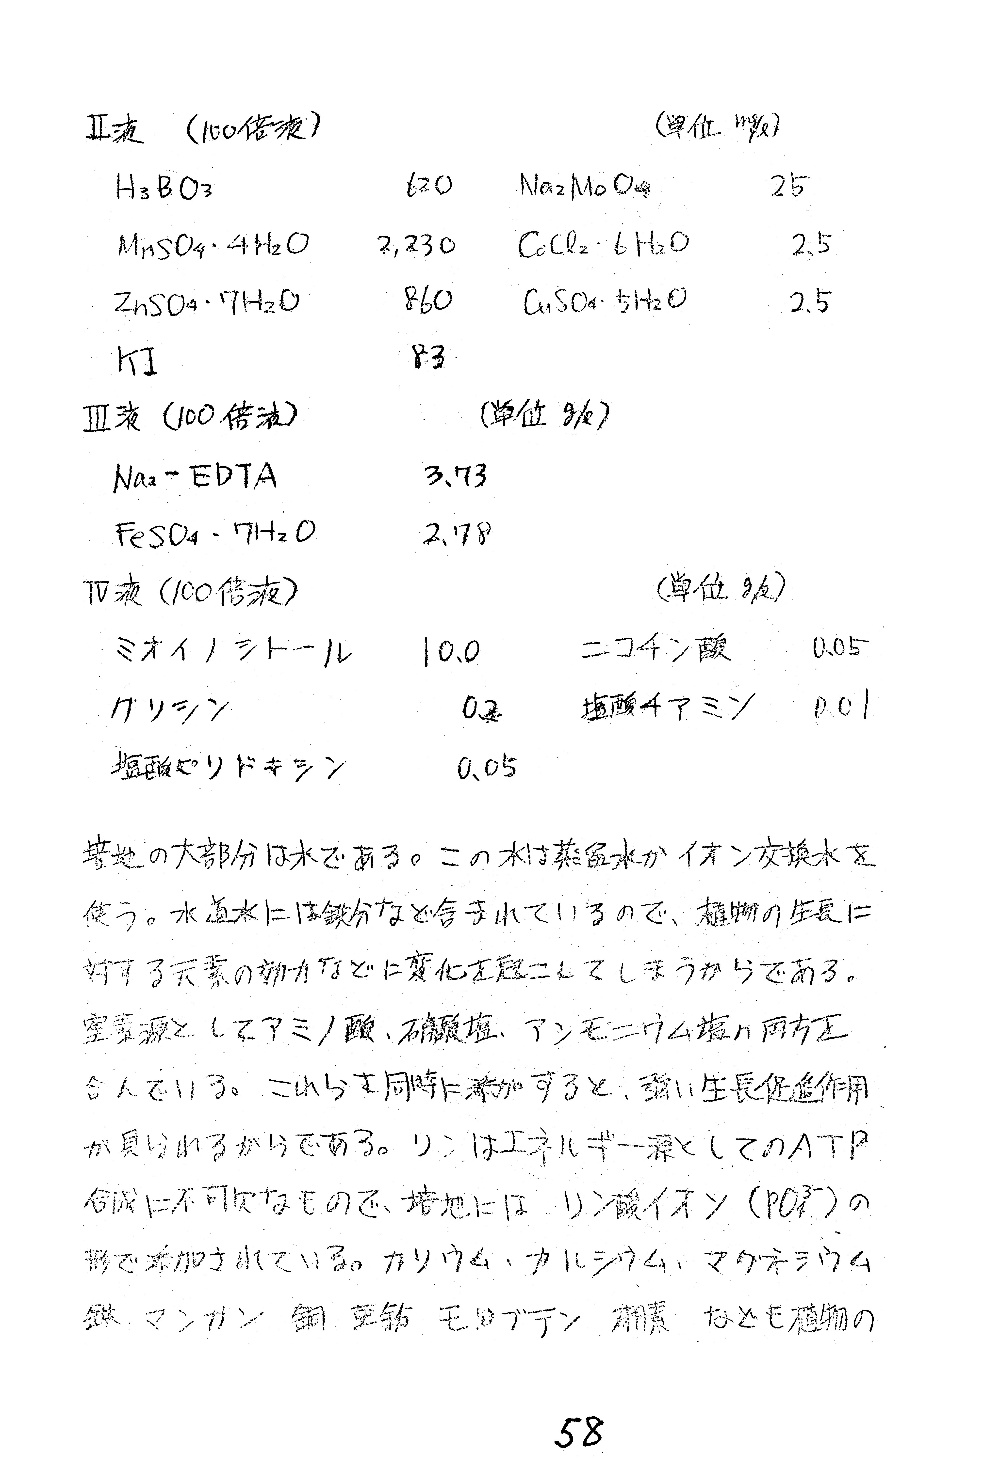 II液 (100倍液) (単位 mg/ℓ)
H₃BO₃ 620 Na₂MoO₄ 25
MnSO₄・4H₂O 2,230 CoCl₂・6H₂O 2.5
ZnSO₄・7H₂O 860 CuSO₄・5H₂O 2.5
KI 83
III液 (100倍液) (単位 g/ℓ)
Na₂-EDTA 3.73
FeSO₄・7H₂O 2.78
IV液 (100倍液) (単位 g/ℓ)
ミオイノシトール 10.0 ニコチン酸 0.05
グリシン 0.2 塩酸チアミン 0.01
塩酸ピリドキシン 0.05
培地の大部分は水である。この水は蒸留水かイオン交換水を
使う。水道水には鉄分など含まれているので、植物の生長に
対する元素の効力などに変化を起こしてしまうからである。
窒素源としてアミノ酸、硝酸塩、アンモニウム塩の両方を
含んでいる。これらを同時に添加すると、強い生長促進作用
が見られるからである。リンはエネルギー源としてのATP
合成に不可欠なもので、培地には リン酸イオン(PO₄³⁻)の
形で添加されている。カリウム、カルシウム、マグネシウム
鉄 マンガン 銅 亜鉛 モリブデン 硼素 なども植物の
58